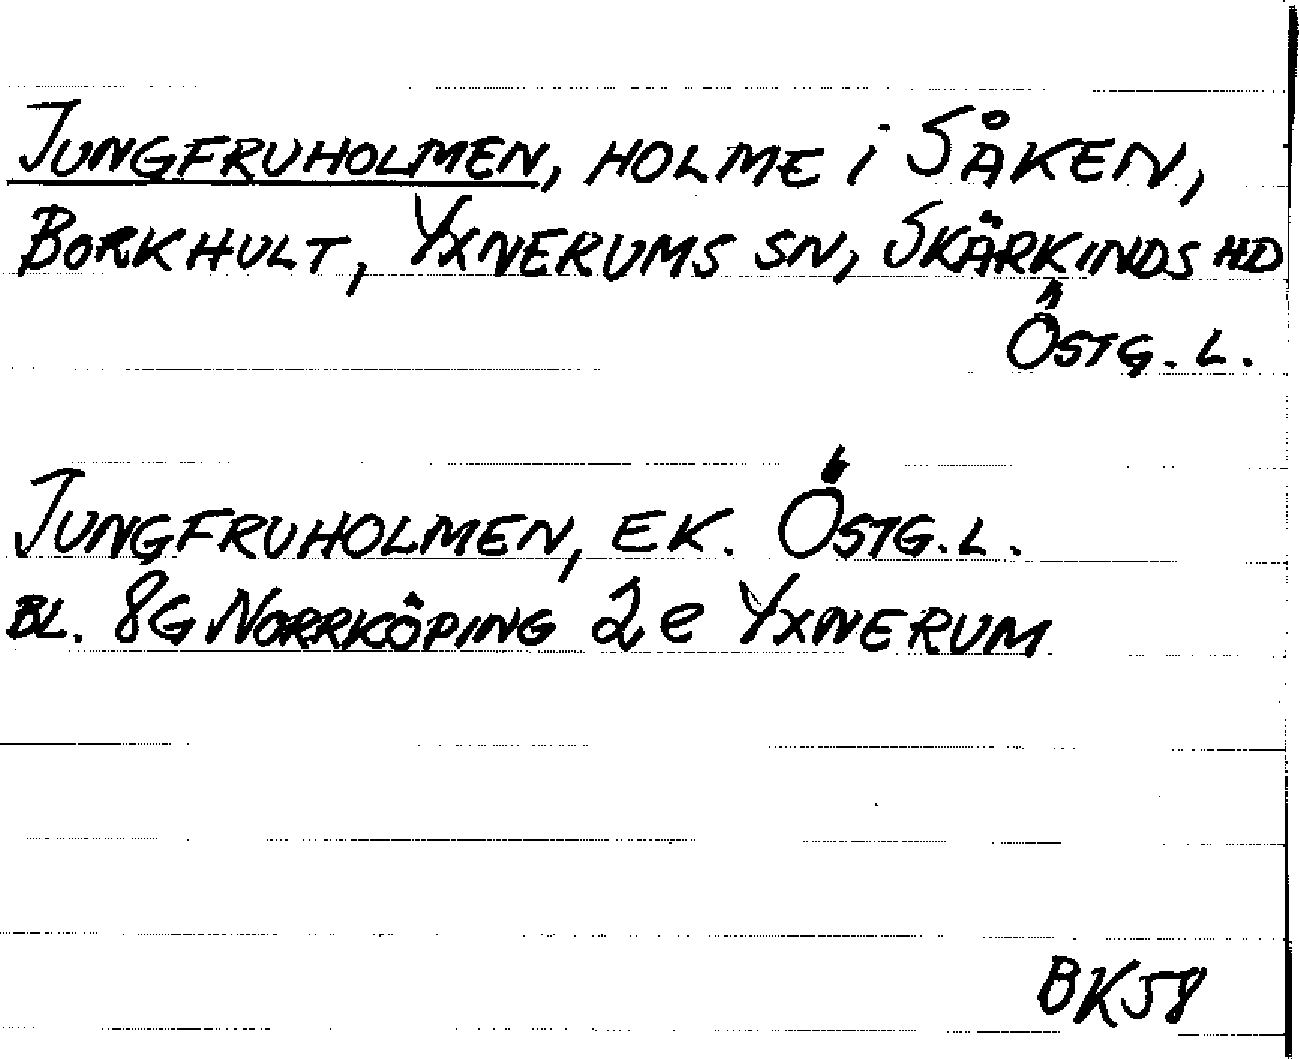 JUNGFRUHOLMEN, HOLME i SÅKEN,
BORKHULT, YXNERUMS SN, SKÄRKINDS HD
ÖSTG. L.
JUNGFRUHOLMEN, EK. ÖSTG. L.
BL. 8G NORRKÖPING 2e YXNERUM
BK58